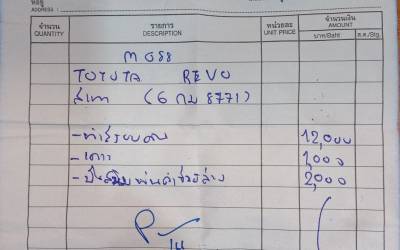 ที่อยู่
ADDRESS :
จำนวน QUANTITY รายการ DESCRIPTION หน่วยละ UNIT PRICE จำนวนเงิน AMOUNT
บาท/Baht ส.ต./Stg.
TOYOTA REVO
สีเทา (6 กม 8771)
- ทำสีรอบคัน 12,000
- 1,000
- ช่วงล่าง 2,000